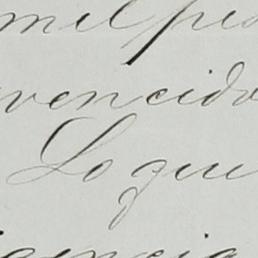 mil pies
vencido
Lo que